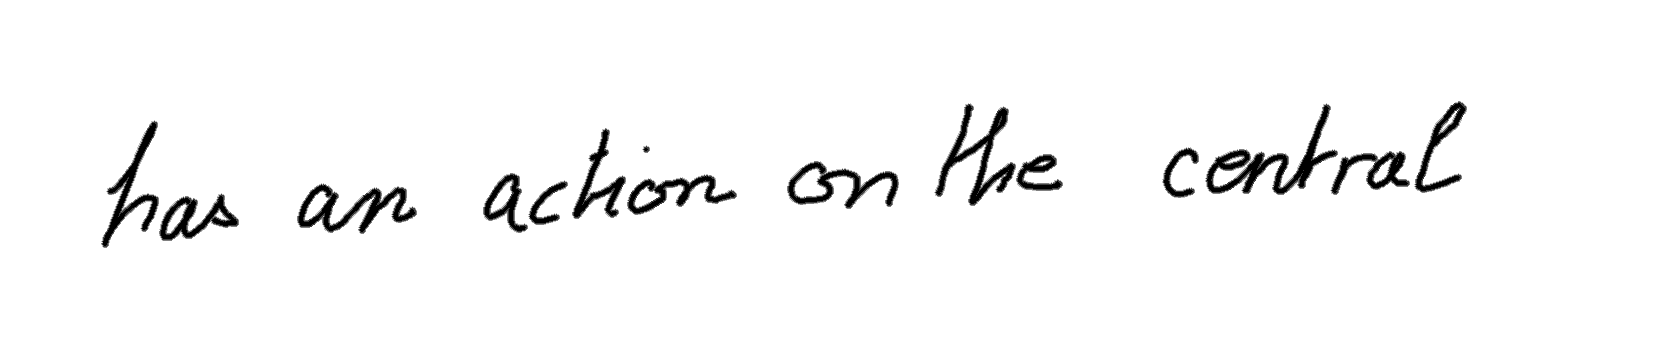 has an action on the central